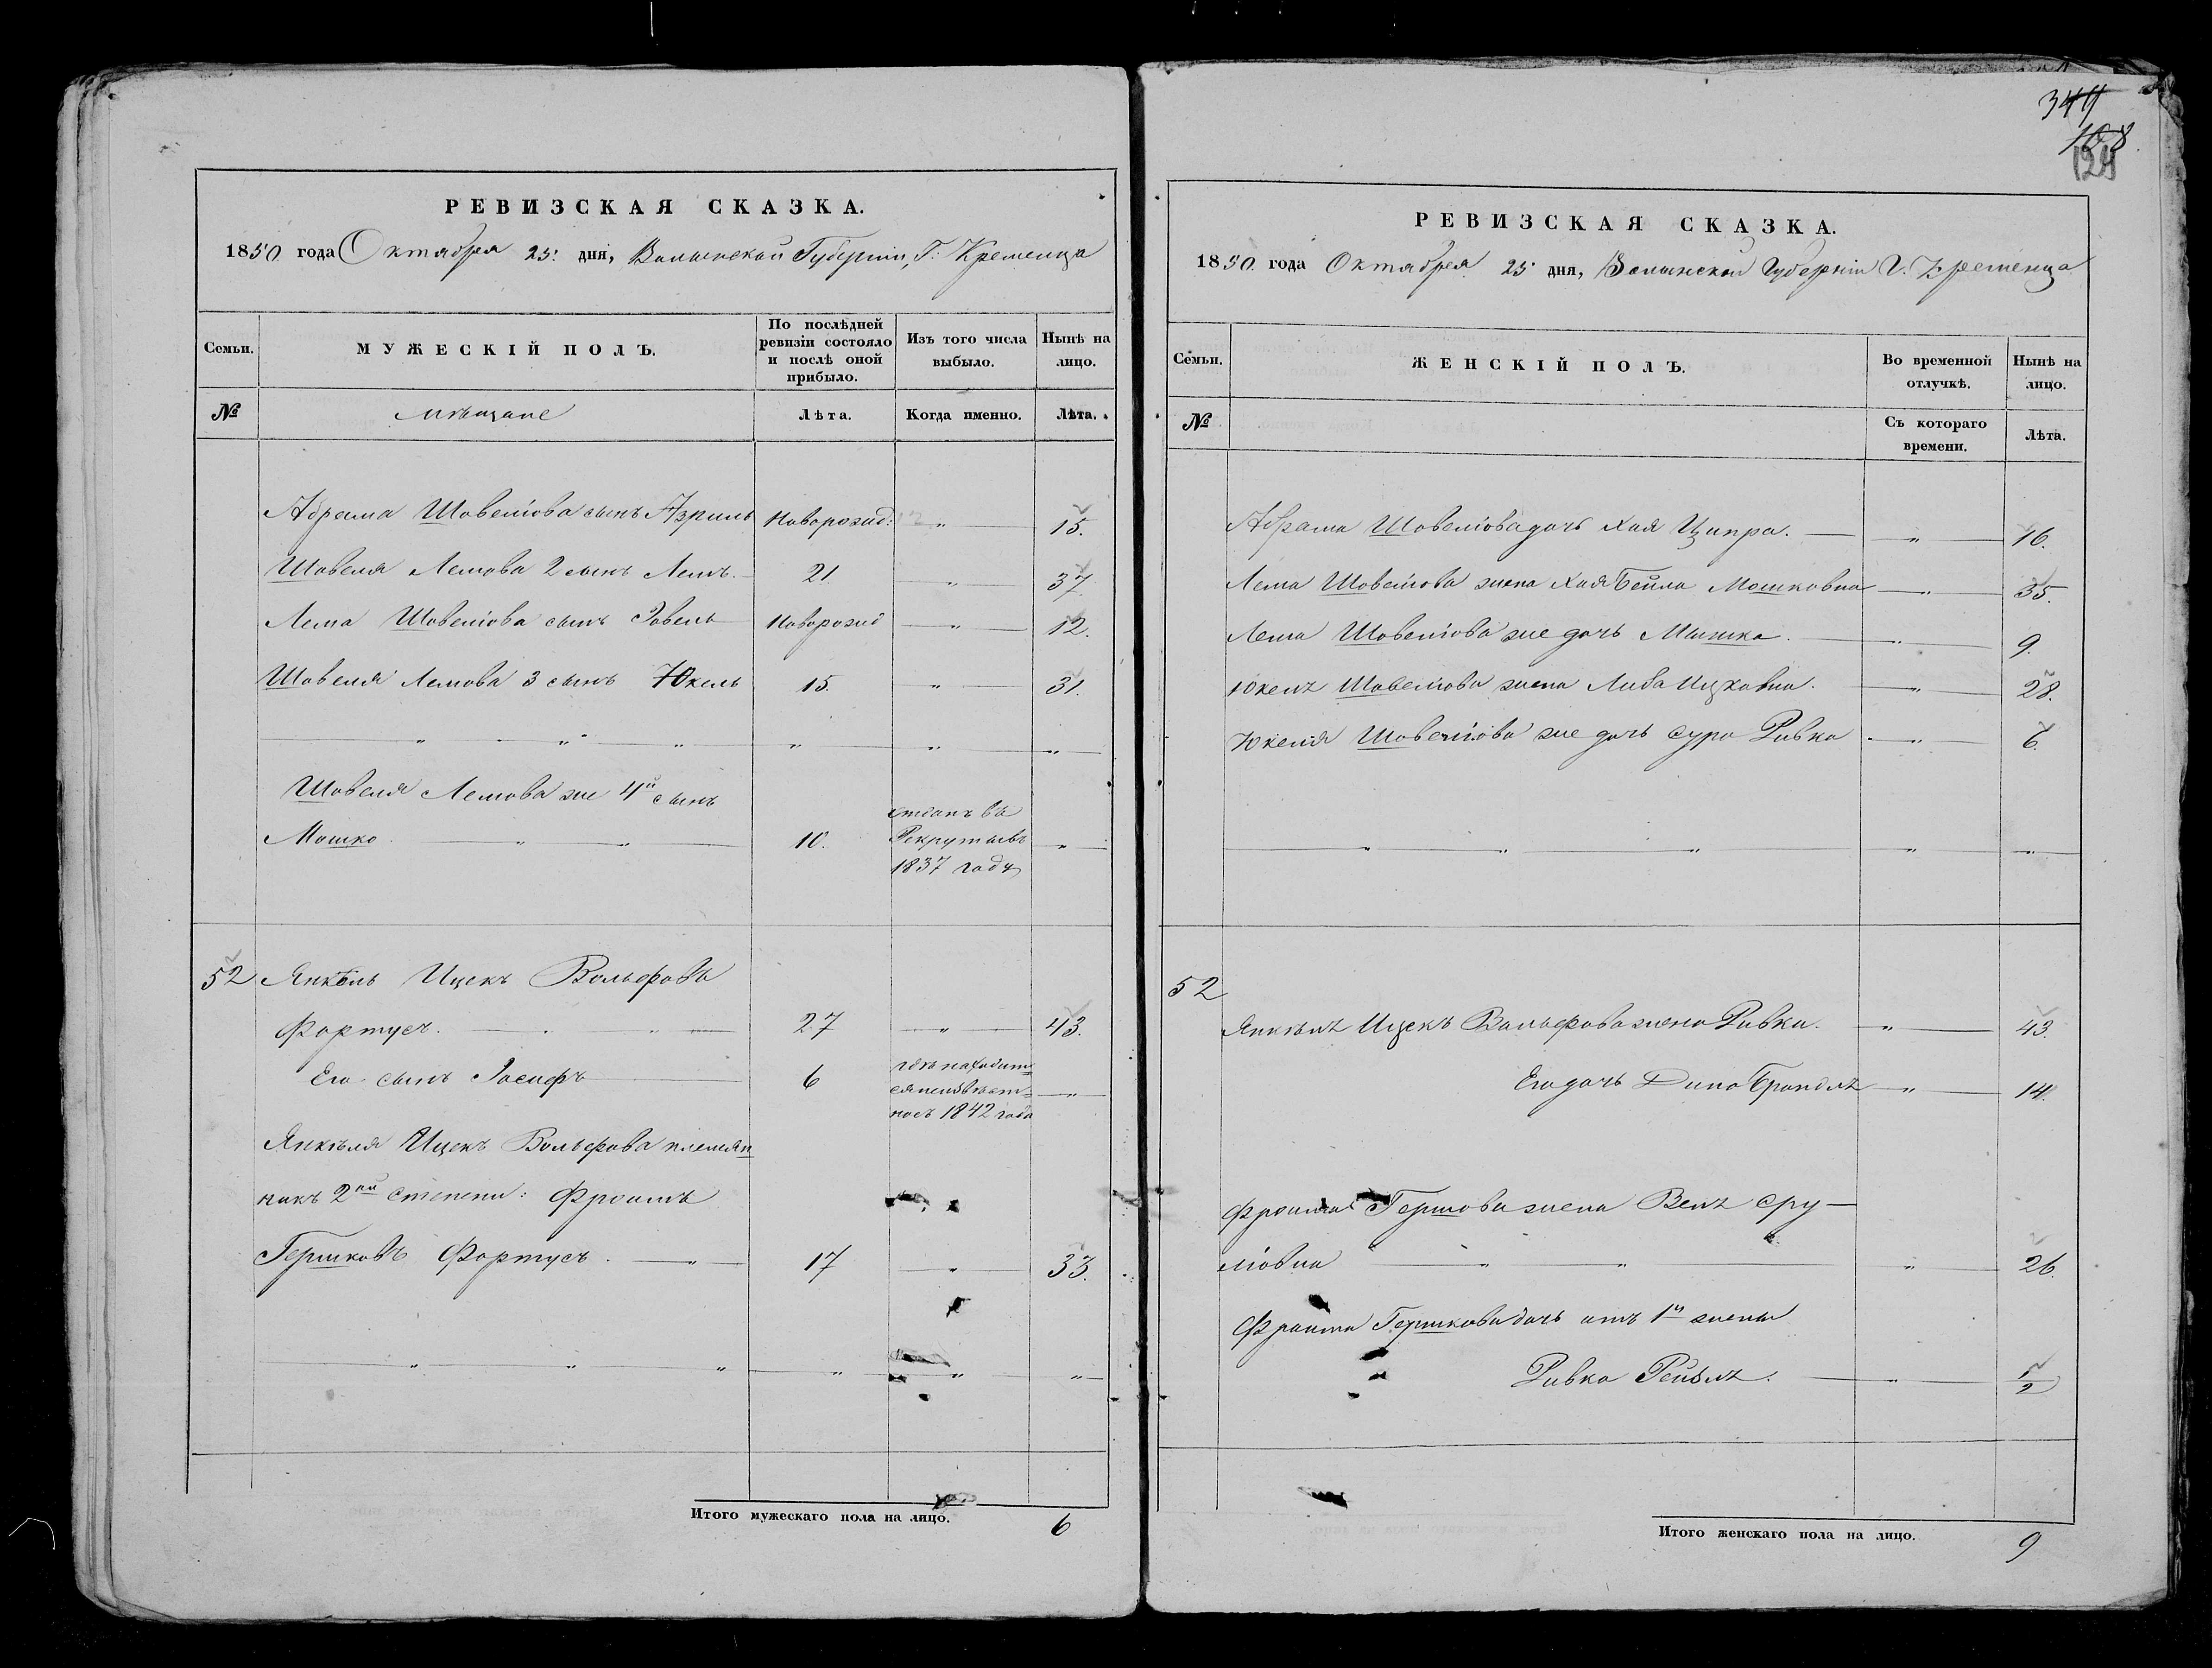 344
108
129
РЕВИЗСКАЯ СКАЗКА.
1850 года Октября 25 дня, Волынской Губерніи, Г. Кременца
Семьи.
МУЖЕСКІЙ ПОЛЪ.
По послѣдней ревизіи состояло и послѣ оной прибыло.
Изъ того числа выбыло.
Нынѣ на лицо.
№
Мѣщане
Лѣта.
Когда именно.
Лѣта.
Абрама Шовеліова сынъ Азриль Новорожд: " 15.
Шовеля Лемова 2 сынъ Лемъ. 21. " 37.
Лема Шовеліова сынъ Іовель Новорожд " 12.
Шовеля Лемова 3 сынъ Юкель 15. " 31.
" " " " " "
Шовеля Лемова же 4й сынъ
Мошко " " 10. отданъ въ Рекруты въ 1837 году "
52 Янкель Ицекъ Вольфовъ
Фортусъ. 27 " 43.
Его сынъ Іосифъ 6 гдѣ находит= ся неизвѣст= носъ 1842 года "
Янкѣля Ицекъ Вольфова племян
никъ 2ой степени: Фроимъ
Гершковъ Фортусъ. " 17 " 33.
" " " " " "
Итого мужескаго пола на лицо. 6
РЕВИЗСКАЯ СКАЗКА.
1850 года Октября 25 дня, Волынской Губерніи Г. Кременца
Семьи.
ЖЕНСКІЙ ПОЛЪ.
Во временной отлучкѣ.
Нынѣ на лицо.
№
Съ котораго времени.
Лѣта.
Абрама Шовеліова дочь Хая Ципра. " 16.
Лема Шовеліова жена Хая Бейла Мошковна " 35.
Лема Шовеліова же дочь Мышка. " 9.
Юкелъ Шовеліова жена Либа Ицковна. " 28.
Юкеля Шовеліова же дочь Сура Ривка " 6.
" " " " "
52
Янкѣлъ Ицекъ Вольфова жена Ривка. " 43.
Его дочь Дина Брандлъ " 14.
Фроима Гершова жена Велъ Сру—
ліовна " " " 26.
Фроима Гершкова дочь отъ 1й жены
Ривка Рейзлъ. " 1/2
Итого женскаго пола на лицо. 9